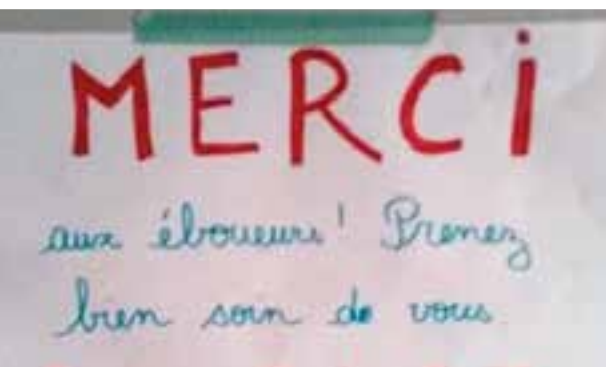 MERCi
aux éboueurs ! Prenez
bien soin de vous